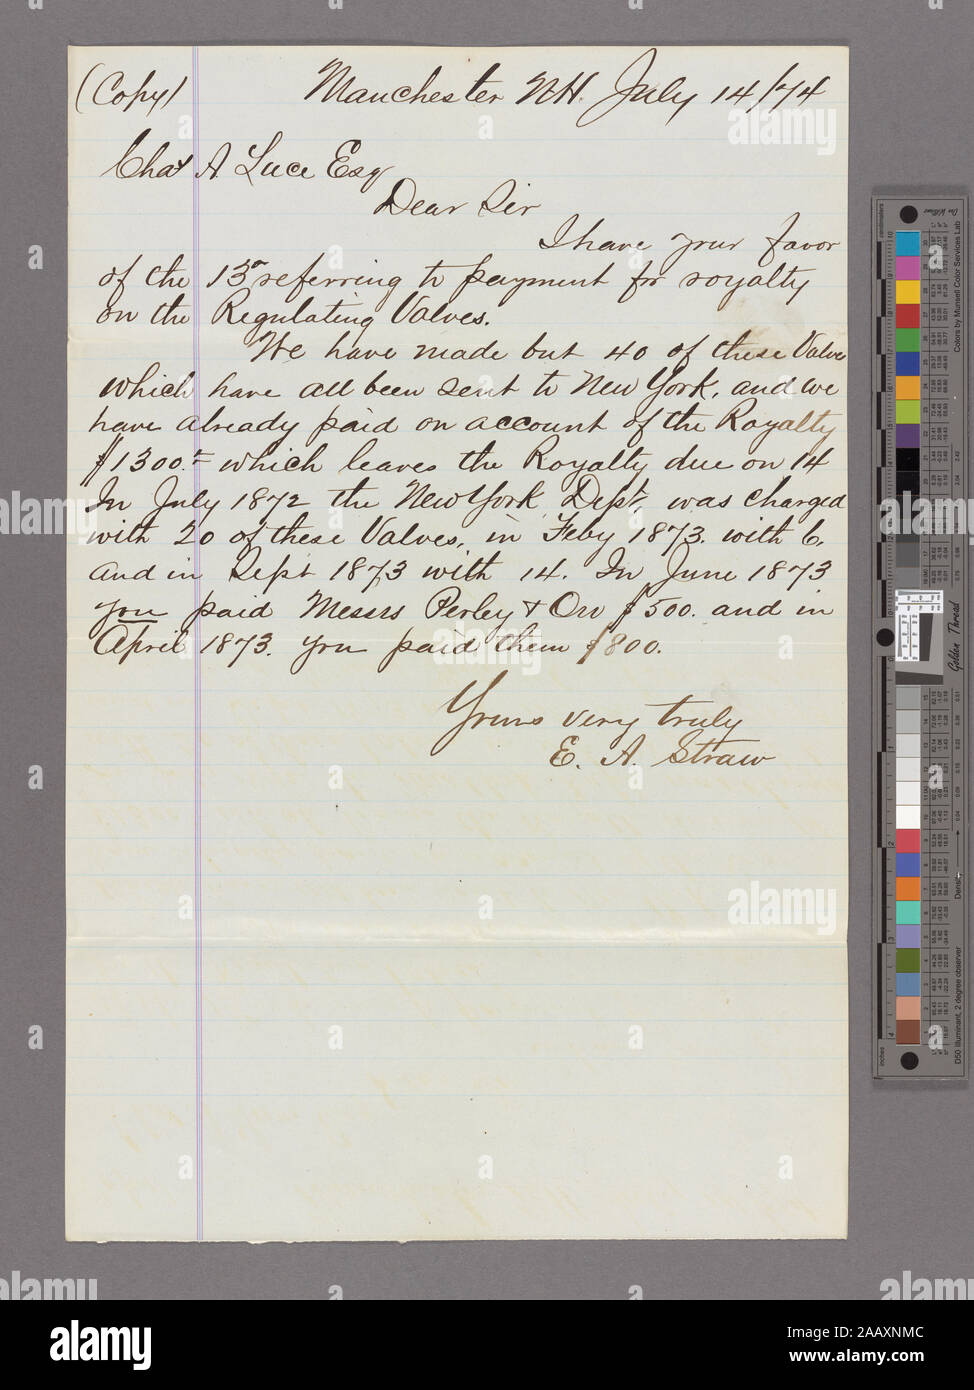 (Copy) Manchester NH. July 14/74
Chas A. Luce Esq
Dear Sir
I have your favor
of the 13" referring to payment for royalty
on the Regulating Valves.
We have made but 40 of these Valve
which have all been sent to New York, and we
have already paid on account of the Royalty
$1300.= which leaves the Royalty due on 14
In July 1872 the New York Dept, was charged
with 20 of these Valves, in Feby 1873. with 6.
and in Sept 1873 with 14. In June 1873
you paid Messrs Perley & Orr $500. and in
April 1873. you paid them $800.
Yours very truly
E. A. Straw
centimetres
Colors by Munsell Color Services Lab
Golden Thread
Density
D50 Illuminant, 2 degree observer
inches
alamy
Image ID: 2AAXNMC
www.alamy.com